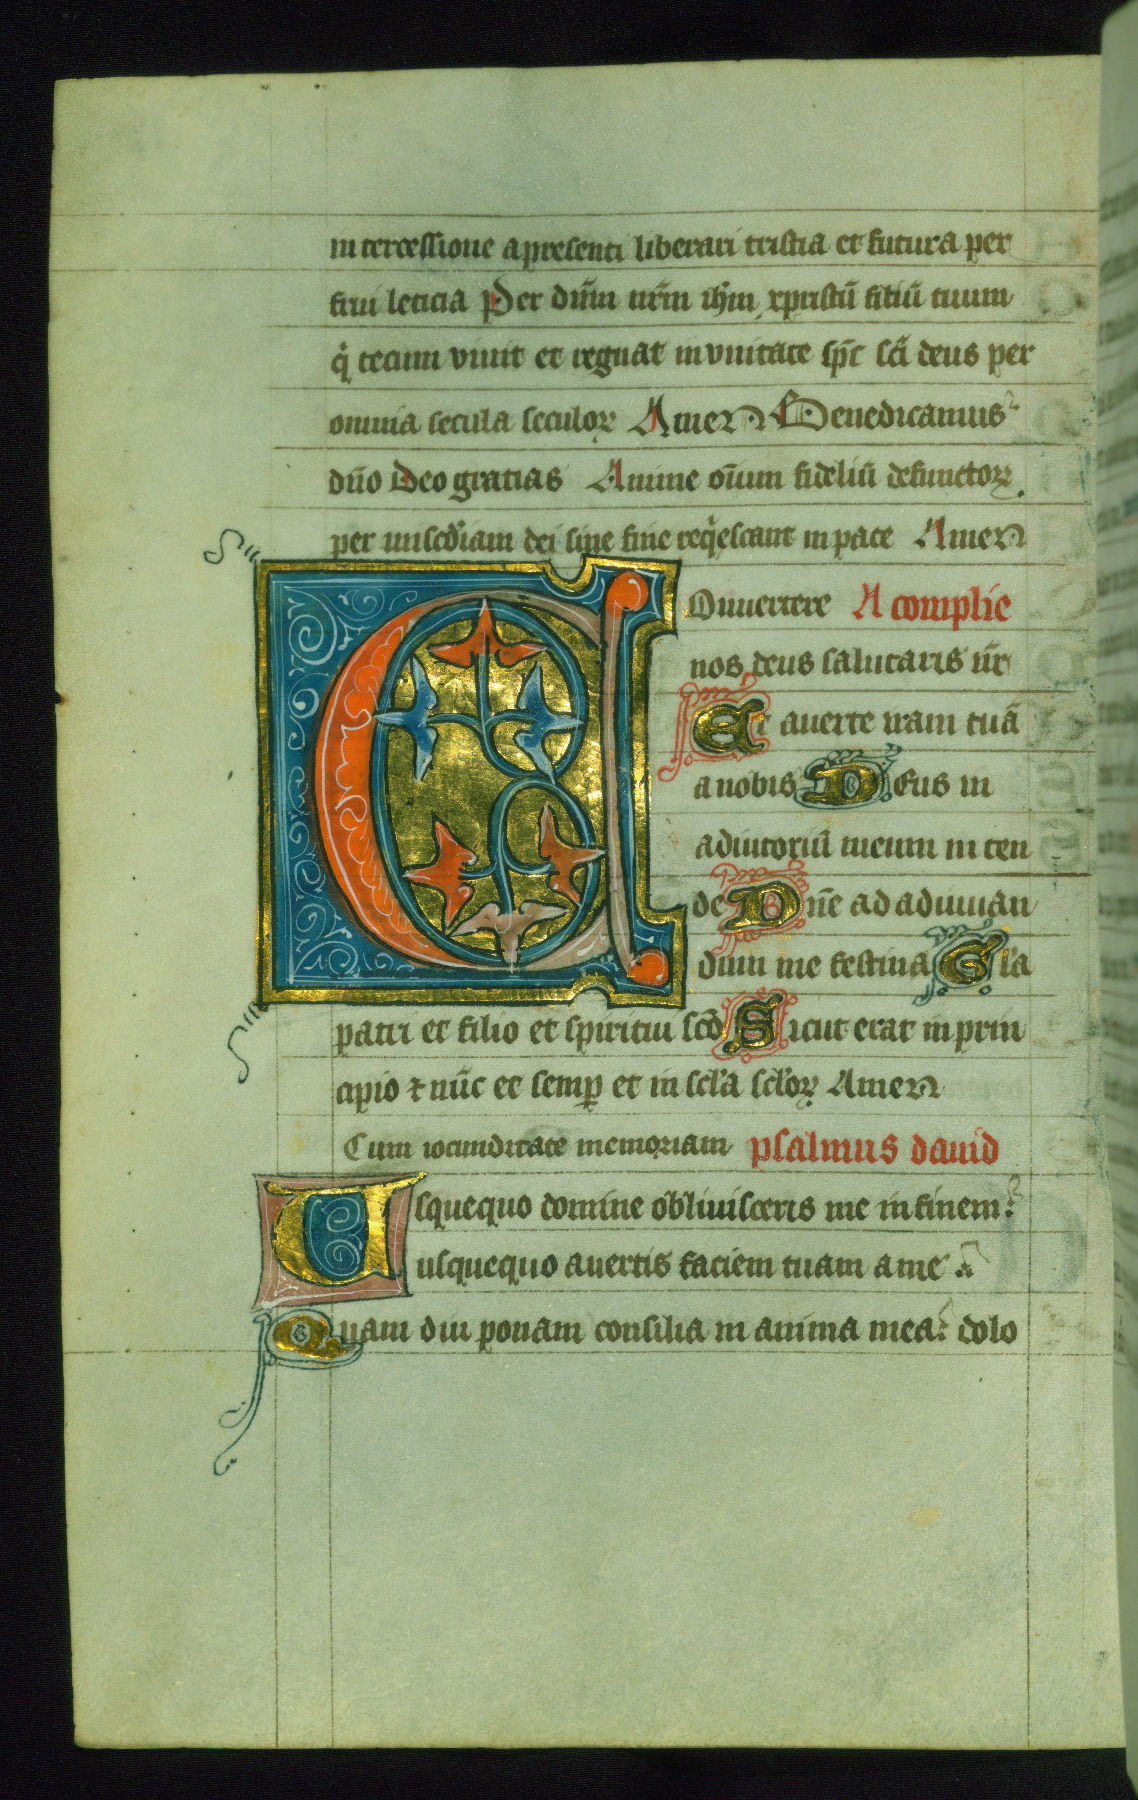 intercessione a presenti liberari tristia et futura per
frui leticia Per dn̄m nr̄m ih̄m xpristū filiū tuum
qͥ tecum viuit et regnat in vnitate sp̄c sc̄i deus per
omnia secula seculoꝝ Amen Benedicamus
dn̄o Deo gratias Anime on̄ium fideliū defunctoꝝ
per misc̄diam dei sine fine reqͥescant in pace Amen
Conuertere A complie
nos deus salutaris nr̄
Et auerte iram tuā
a nobis Deus in
adiutoriū meum in ten
de Dn̄e ad adiuuan
dum me festina Gl̄a
patri et filio et spiritui sc̄o Sicut erat in prin
cipio ⁊ nūc et semꝑ et in scl̄a scl̄oꝝ Amen
Cum iocunditate memoriam psalmus dauid
Usquequo domine obliuisceris me in finem
usquequo auertis faciem tuam a me
Quam diu ponam consilia in anima mea dolo